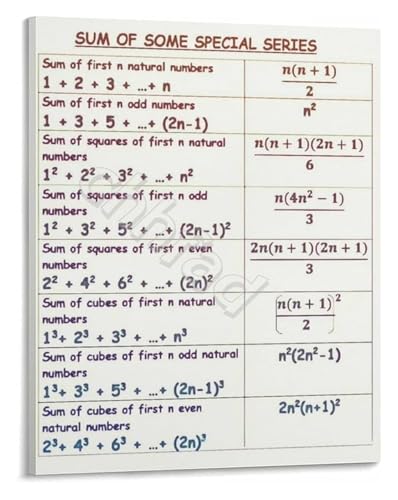 SUM OF SOME SPECIAL SERIES
Sum of first n natural numbers
1 + 2 + 3 + ...+ n
n(n + 1)
2
Sum of first n odd numbers
1 + 3 + 5 + ...+ (2n-1)
n²
Sum of squares of first n natural
numbers
1² + 2² + 3² + ...+ n²
n(n + 1)(2n + 1)
6
Sum of squares of first n odd
numbers
1² + 3² + 5² ...+ (2n-1)²
n(4n² − 1)
3
Sum of squares of first n even
numbers
2² + 4² + 6² + ...+ (2n)²
2n(n + 1)(2n + 1)
3
Sum of cubes of first n natural
numbers
1³+ 2³ + 3³ + ...+ n³
(n(n + 1))²
2
Sum of cubes of first n odd natural
numbers
1³+ 3³ + 5³ + ...+ (2n-1)³
n²(2n²-1)
Sum of cubes of first n even
natural numbers
2³+ 4³ + 6³ + ...+ (2n)³
2n²(n+1)²